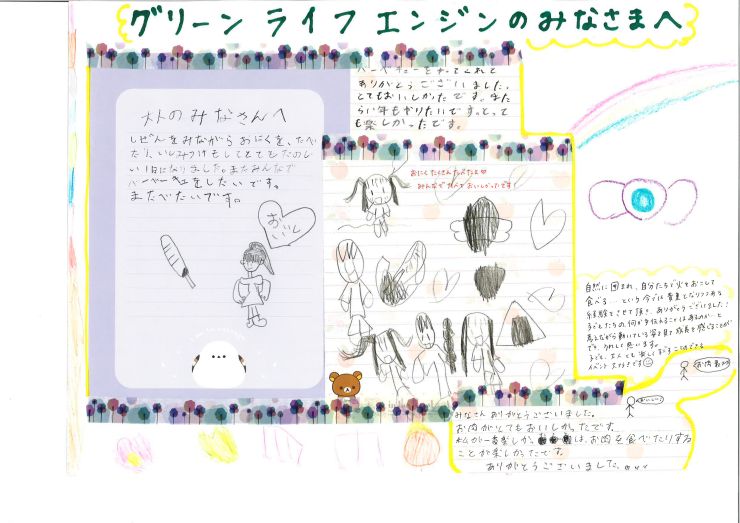 グリーン ライフ エンジンのみなさまへ
バーベキューをやってくれて
ありがとうございました。
とてもおいしかったです。また
らい年もやりたいです。とって
も楽しかったです。
木木のみなさんへ
しぜんをみながらおにくを、たべ
たり、いしみつけもしてとてもたのし
い1日になりました。またみんなで
バーベーキュをしたいです。
またべたいです。
おいし
おにくたくさんたべたよ♡
みんなで食べておいしかったです!
自然に囲まれ、自分たちで火をおこして
食べる... という今では貴重となりつつある
経験をさせて頂き、ありがとうございました!
子どもたちの何か手伝えることはあるのか…と
考えながら動いている姿を見て成長を感じることが
でき、うれしく思います。
子ども、大人とも楽しくすごすことができる
イベント 大好きです☺
お肉最高
おいしい♪
みなさんありがとうございました。
お肉がとてもおいしかったです。
私が一番楽しか は、お肉を食べたりする
ことが楽しかったです。
ありがとうございました。